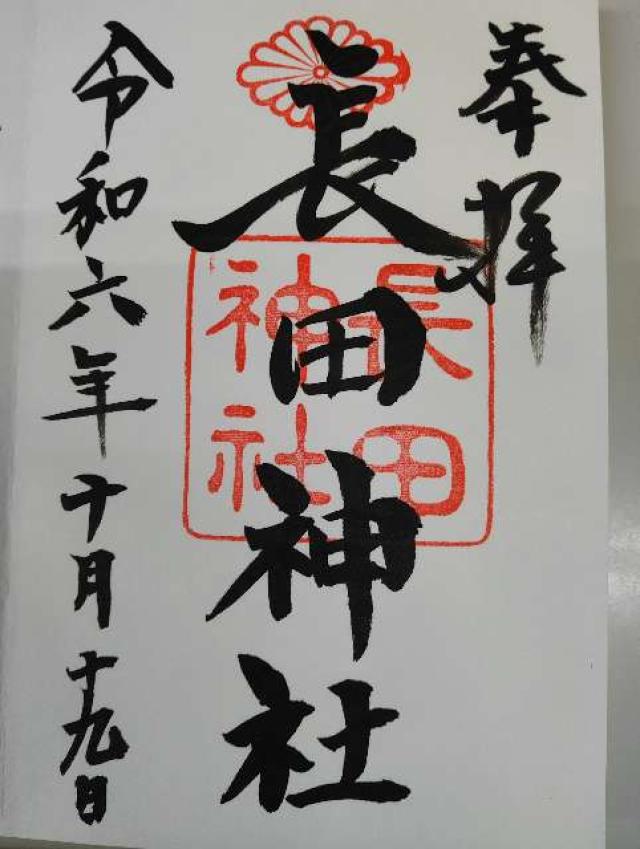 奉拝
長田神社
長田
神社
令和六年十月十九日